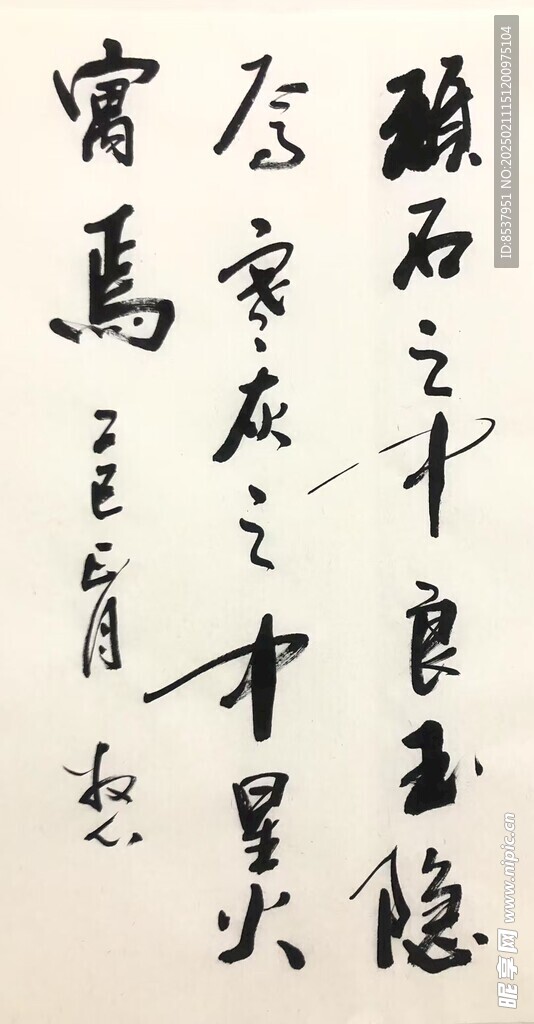 頑石之中良玉隐
焉寒灰之中星火
寓焉 乙巳正月
ID:8537951 NO:20250211151200975104
昵享网 www.nipic.cn